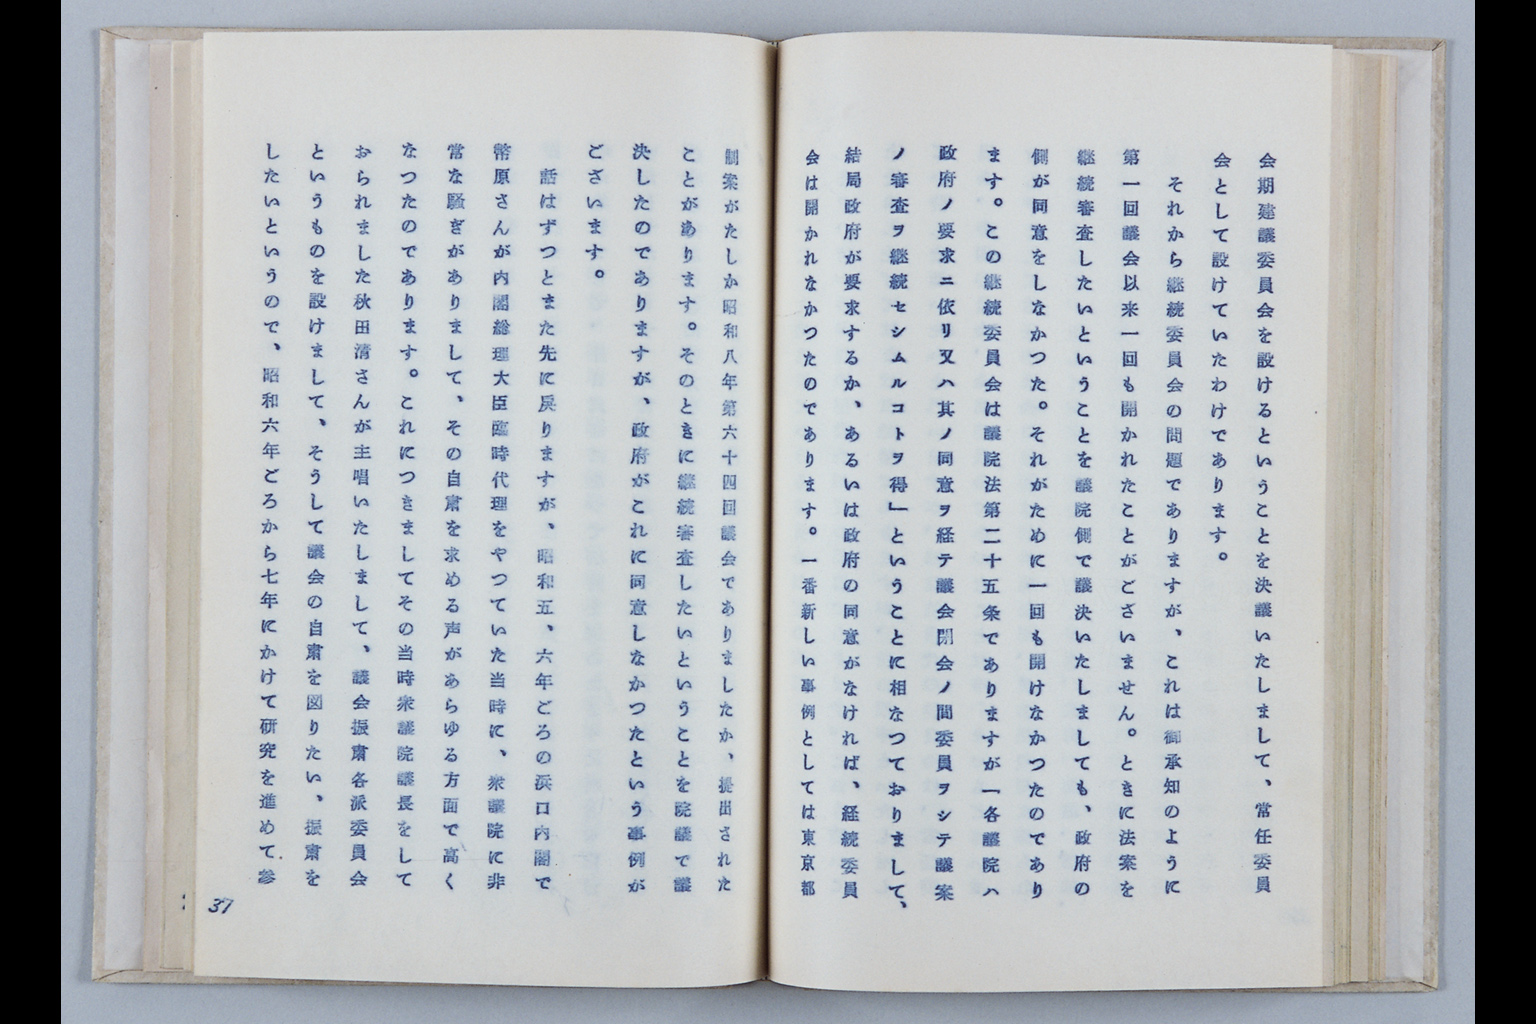 会期建議委員会を設けるということを決議いたしまして、常任委員
会として設けていたわけであります。
それから継続委員会の問題でありますが、これは御承知のように
第一回議会以来一回も開かれたことがございません。ときに法案を
継続審査したいということを議院側で議決いたしましても、政府の
側が同意をしなかつた。それがために一回も開けなかつたのであり
ます。この継続委員会は議院法第二十五条でありますが「各議院ハ
政府ノ要求ニ依リ又ハ其ノ同意ヲ経テ議会閉会ノ間委員ヲシテ議案
ノ審査ヲ継続セシムルコトヲ得」ということに相なつておりまして、
結局政府が要求するか、あるいは政府の同意がなければ、経続委員
会は開かれなかつたのであります。一番新しい事例としては東京都
制案がたしか昭和八年第六十四回議会でありましたか、提出された
ことがあります。そのときに継続審査したいということを院議で議
決したのでありますが、政府がこれに同意しなかつたという事例が
ございます。
話はずつとまた先に戻りますが、昭和五、六年ごろの浜口内閣で
幣原さんが内閣総理大臣臨時代理をやつていた当時に、衆議院に非
常な騒ぎがありまして、その自粛を求める声があらゆる方面で高く
なつたのであります。これにつきましてその当時衆議院議長をして
おられました秋田清さんが主唱いたしまして、議会振粛各派委員会
というものを設けまして、そうして議会の自粛を図りたい、振粛を
したいというので、昭和六年ごろから七年にかけて研究を進めて参
37